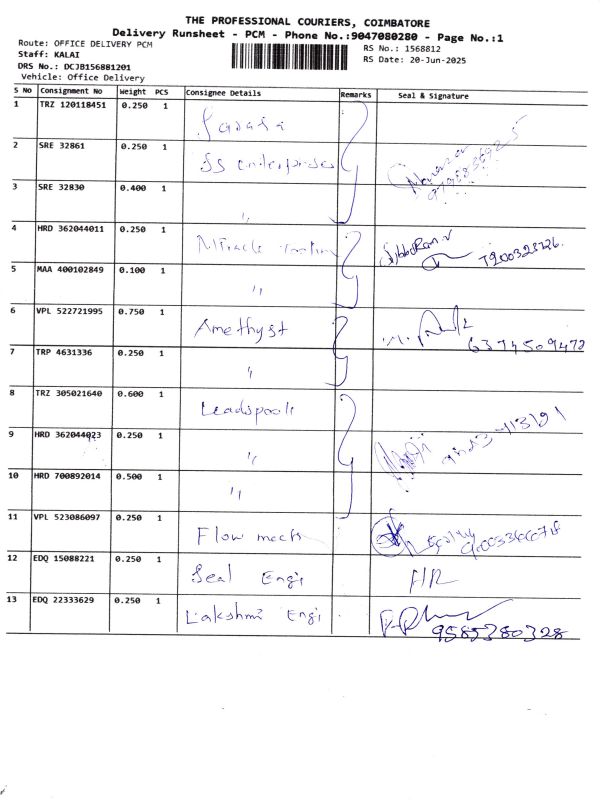 THE PROFESSIONAL COURIERS, COIMBATORE
Delivery Runsheet - PCM - Phone No.:9047080280 - Page No.:1
Route: OFFICE DELIVERY PCM
Staff: KALAI
DRS No.: DCJB156881201
Vehicle: Office Delivery
RS No.: 1568812
RS Date: 20-Jun-2025
S No Consignment No Weight PCS Consignee Details Remarks Seal & Signature
1 TRZ 120118451 0.250 1
2 SRE 32861 0.250 1 SS enterprises
3 SRE 32830 0.400 1 "
4 HRD 362044011 0.250 1 Miracle
5 MAA 400102849 0.100 1 "
6 VPL 522721995 0.750 1 Amethyst 6374509472
7 TRP 4631336 0.250 1 "
8 TRZ 305021640 0.600 1
9 HRD 362044023 0.250 1 "
10 HRD 700892014 0.500 1 "
11 VPL 523086097 0.250 1 Flow mech
12 EDQ 15088221 0.250 1 Seal Engi
13 EDQ 22333629 0.250 1 Lakshmi Engi 9585380328